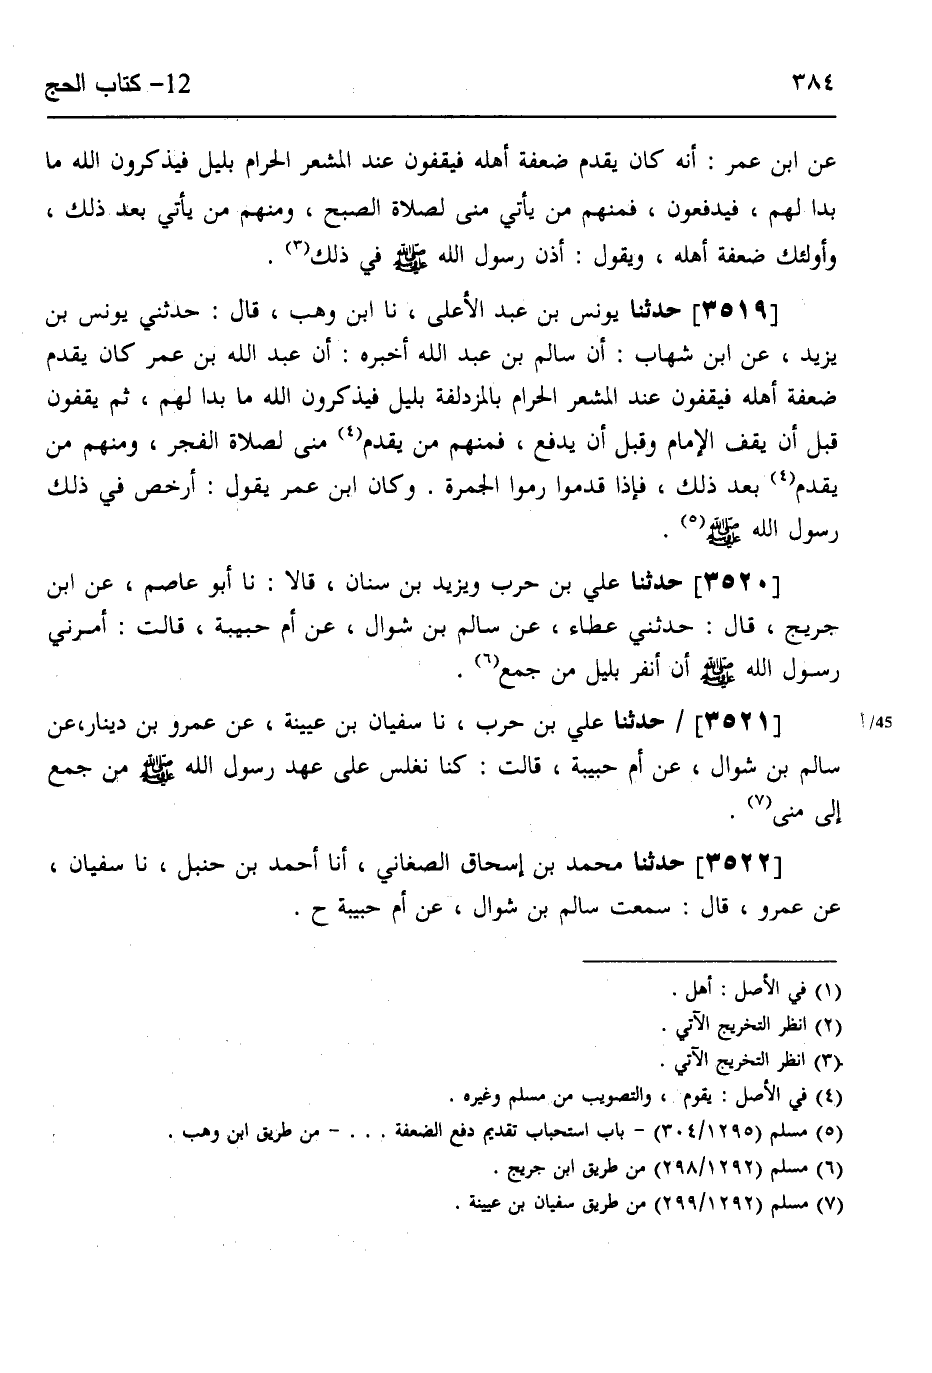 ٣٨٤
12- كتاب الحج
عن ابن عمر : أنه كان يقدم ضعفة أهله فيقفون عند المشعر الحرام بليل فيذكرون الله ما
بدا لهم ، فيدفعون ، فمنهم من يأتي منى لصلاة الصبح ، ومنهم من يأتي بعد ذلك ،
وأولئك ضعفة أهله ، ويقول : أذن رسول الله ﷺ في ذلك(٣) .
[٣٥١٩] حدثنا يونس بن عبد الأعلى ، نا ابن وهب ، قال : حدثني يونس بن
يزيد ، عن ابن شهاب : أن سالم بن عبد الله أخبره : أن عبد الله بن عمر كان يقدم
ضعفة أهله فيقفون عند المشعر الحرام بالمزدلفة بليل فيذكرون الله ما بدا لهم ، ثم يقفون
قبل أن يقف الإمام وقبل أن يدفع ، فمنهم من يقدم(٤) منى لصلاة الفجر ، ومنهم من
يقدم(٤) بعد ذلك ، فإذا قدموا رموا الجمرة . وكان ابن عمر يقول : أرخص في ذلك
رسول الله ﷺ(٥) .
[٣٥٢٠] حدثنا علي بن حرب ويزيد بن سنان ، قالا : نا أبو عاصم ، عن ابن
جريج ، قال : حدثني عطاء ، عن سالم بن شوال ، عن أم حبيبة ، قالت : أمرني
رسول الله ﷺ أن أنفر بليل من جمع(٦) .
[٣٥٢١] / حدثنا علي بن حرب ، نا سفيان بن عيينة ، عن عمرو بن دينار،عن
45/أ
سالم بن شوال ، عن أم حبيبة ، قالت : كنا نغلس على عهد رسول الله ﷺ من جمع
إلى منى(٧) .
[٣٥٢٢] حدثنا محمد بن إسحاق الصغاني ، أنا أحمد بن حنبل ، نا سفيان ،
عن عمرو ، قال : سمعت سالم بن شوال ، عن أم حبيبة ح .
(١) في الأصل : أهل .
(٢) انظر التخريج الآتي .
(٣) انظر التخريج الآتي .
(٤) في الأصل : يقوم ، والتصويب من مسلم وغيره .
(٥) مسلم (٣٠٤/١٢٩٥) - باب استحباب تقديم دفع الضعفة . . . - من طريق ابن وهب .
(٦) مسلم (٢٩٨/١٢٩٢) من طريق ابن جريج .
(٧) مسلم (٢٩٩/١٢٩٢) من طريق سفيان بن عيينة .